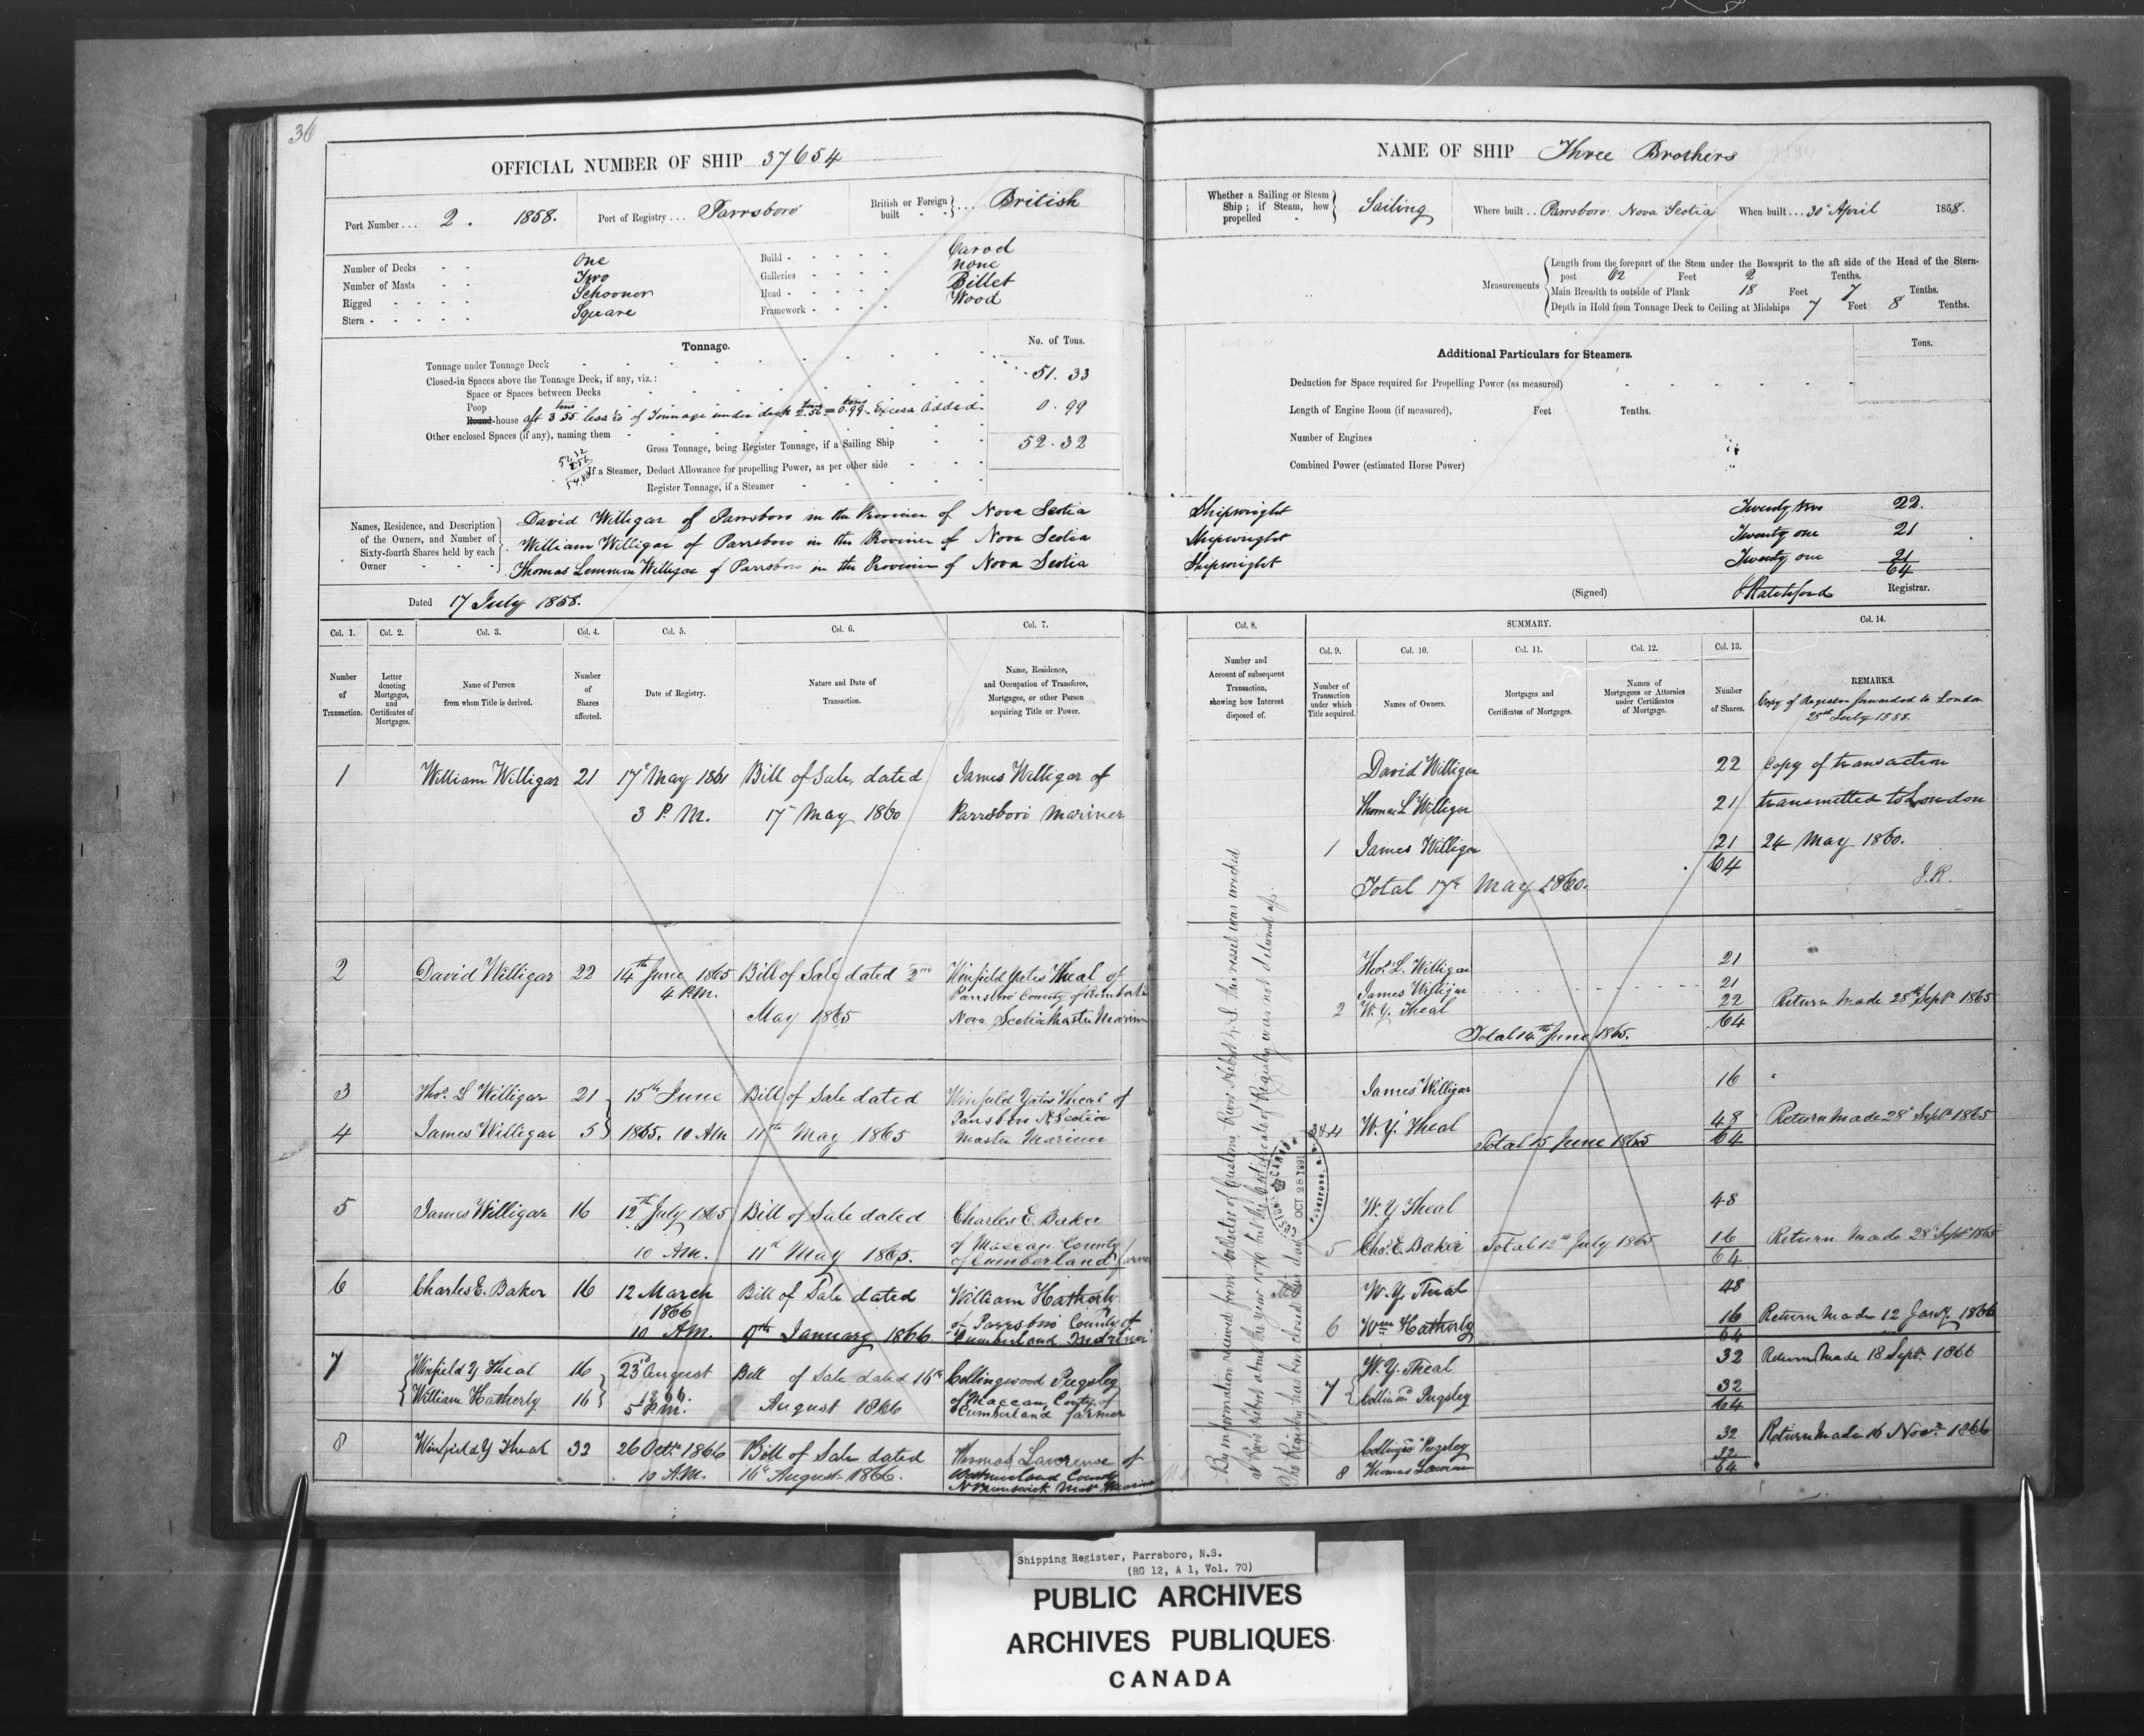 36
OFFICIAL NUMBER OF SHIP 37654
Port Number ... 2. 1858. Port of Registry ... Parrsboro British or Foreign built } ... British
Number of Decks - - One Build - - - - - Carvel
Number of Masts - - Two Galleries - - - - None
Rigged - - - - Schooner Head - - - - - Billet
Stern - - - - - Square Framework - - - - Wood
Tonnage. No. of Tons.
Tonnage under Tonnage Deck 51.33
Closed-in Spaces above the Tonnage Deck, if any, viz.:
Space or Spaces between Decks
Poop
Round-house aft 3.55 tons less of Tonnage under deck 2.56 tons = 0.99 tons Excess Added 0.99
Other enclosed Spaces (if any), naming them
Gross Tonnage, being Register Tonnage, if a Sailing Ship 52.32
If a Steamer, Deduct Allowance for propelling Power, as per other side
Register Tonnage, if a Steamer
Names, Residence, and Description of the Owners, and Number of Sixty-fourth Shares held by each Owner
David Willigar of Parrsboro in the Province of Nova Scotia
William Willigar of Parrsboro in the Province of Nova Scotia
Thomas Lemmon Willigar of Parrsboro in the Province of Nova Scotia
Dated 17 July 1858.
Col. 1. Col. 2. Col. 3. Col. 4. Col. 5. Col. 6. Col. 7.
Number of Transaction.
Letter denoting Mortgages, and Certificates of Mortgages.
Name of Person from whom Title is derived.
Number of Shares affected.
Date of Registry.
Nature and Date of Transaction.
Name, Residence, and Occupation of Transferee, Mortgagee, or other Person acquiring Title or Power.
1 William Willigar 21 17th May 1861 Bill of Sale, dated James Willigar of
3 P.M. 17th May 1860 Parrsboro Mariner
2 David Willigar 22 14th June 1865 Bill of Sale dated 2nd Winfield Yates Theal of
4 P.M. Parrsboro County of Cumberland
May 1865 Nova Scotia Master Mariner
3 Thos. L Willigar 21 15th June Bill of Sale dated Winfield Yates Theal of
Parrsboro N. Scotia
4 James Willigar 5 1865. 10 AM 11th May 1865 Master Mariner
5 James Willigar 16 12th July 1865 Bill of Sale dated Charles E. Baker
10 AM. 11th May 1865. of Maccan County
of Cumberland farmer
6 Charles E. Baker 16 12 March Bill of Sale dated William Hatherly
1866 of Parrsboro County of
10 AM. 9th January 1866 Cumberland Mariner
7 Winfield Y Theal 16 23rd August Bill of Sale dated 16th Collingwood Pugsley
William Hatherly 16 1866. August 1866 of Maccan, County of
5 P.M. Cumberland farmer
8 Winfield Y Theal 32 26 Octr. 1866 Bill of Sale dated Lawrence of
10 A.M. 16th August 1866. Westmorland County
N Brunswick Mariner
NAME OF SHIP Three Brothers
Whether a Sailing or Steam Ship; if Steam, how propelled } Sailing Where built .. Parrsboro Nova Scotia When built ... 30th April 1858.
Measurements
Length from the forepart of the Stem under the Bowsprit to the aft side of the Head of the Stern-
post 62 Feet 2 Tenths.
Main Breadth to outside of Plank 18 Feet 7 Tenths.
Depth in Hold from Tonnage Deck to Ceiling at Midships 7 Feet 8 Tenths.
Additional Particulars for Steamers. Tons.
Deduction for Space required for Propelling Power (as measured)
Length of Engine Room (if measured), Feet Tenths.
Number of Engines
Combined Power (estimated Horse Power)
Shipwright Twenty two 22.
Shipwright Twenty one 21
Shipwright Twenty one 21
64
(Signed) J Ratchford Registrar.
Col. 8. SUMMARY. Col. 14.
Col. 9. Col. 10. Col. 11. Col. 12. Col. 13.
Number and Account of subsequent Transaction, showing how Interest disposed of.
Number of Transaction under which Title acquired.
Names of Owners.
Mortgages and Certificates of Mortgages.
Names of Mortgagees or Attornies under Certificates of Mortgage.
Number of Shares.
REMARKS.
Copy of Register forwarded to London
28th July 1858.
David Willigar 22 Copy of transaction
Thomas L Willigar 21 transmitted to London
1 James Willigar 21 24 May 1860.
64
Total 17th May 1860. J.R.
Thos. L. Willigar 21
James Willigar 21
2 W.Y. Theal 22 Return made 28th Sept 1865
64
Total 14th June 1865.
James Willigar 16
3 & 4 W.Y. Theal 48 Return made 28th Sept 1865
Total 15 June 1865 64
W.Y Theal 48
5 Chas. E. Baker Total 12th July 1865 16 Return made 28th Sept 1865
64
W.Y. Theal 48
6 Wm Hatherly 16 Return made 12 Jany. 1866
64
W.Y. Theal 32 Return made 18 Sept. 1866
7 Pugsley 32
64
Pugsley 32 Return made 16 Novr. 1866
8 Thomas Lawrence 32
64
By information received from Collector of Customs River Hebert N.S. this vessel was wrecked
at River Hebert about the year 1870 but the Certificate of Registry was not delivered up.
The Registry has been closed this day
CUSTOMS CANADA OCT 28 1891 PARRSBORO, N.S.
Shipping Register, Parrsboro, N.S.
(RG 12, A 1, Vol. 70)
PUBLIC ARCHIVES
ARCHIVES PUBLIQUES
CANADA